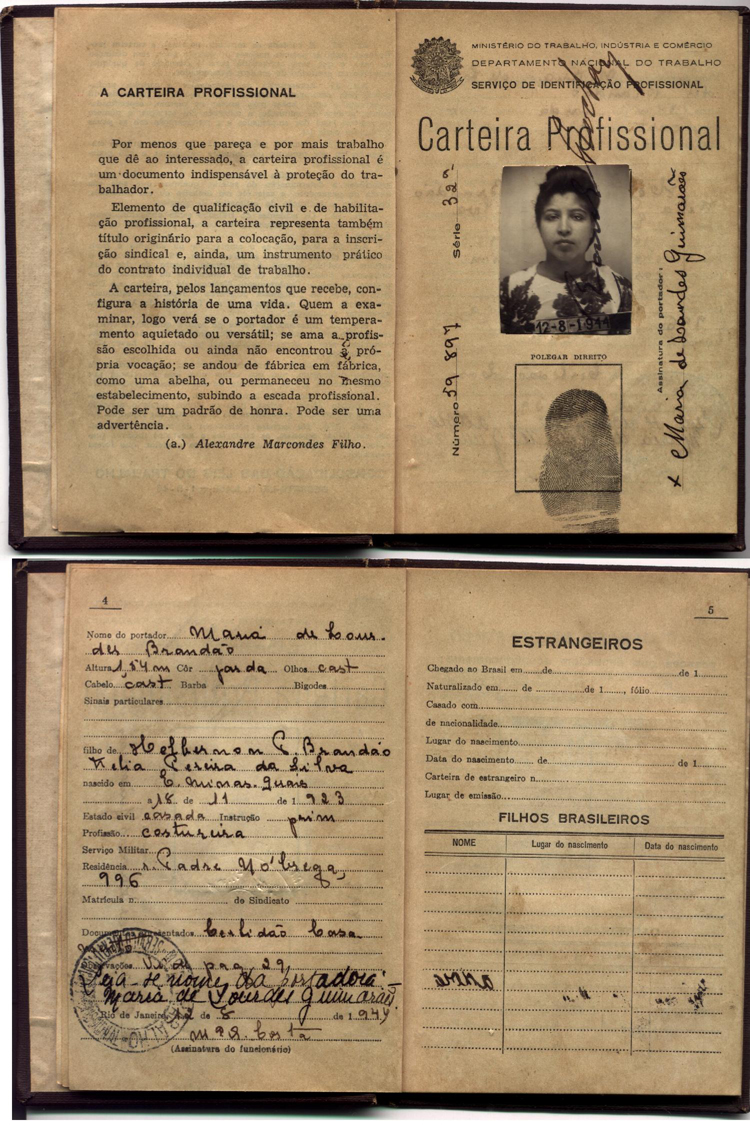 A CARTEIRA PROFISSIONAL
Por menos que pareça e por mais trabalho
que dê ao interessado, a carteira profissional é
um documento indispensável à proteção do tra-
balhador.
Elemento de qualificação civil e de habilita-
ção profissional, a carteira representa também
título originário para a colocação, para a inscri-
ção sindical e, ainda, um instrumento prático
do contrato individual de trabalho.
A carteira, pelos lançamentos que recebe, con-
figura a história de uma vida. Quem a exa-
minar, logo verá se o portador é um tempera-
mento aquietado ou versátil; se ama a profis-
são escolhida ou ainda não encontrou a pró-
pria vocação; se andou de fábrica em fábrica,
como uma abelha, ou permaneceu no mesmo
estabelecimento, subindo a escada profissional.
Pode ser um padrão de honra. Pode ser uma
advertência.
(a.) Alexandre Marcondes Filho.
MINISTÉRIO DO TRABALHO, INDÚSTRIA E COMÉRCIO
DEPARTAMENTO NACIONAL DO TRABALHO
SERVIÇO DE IDENTIFICAÇÃO PROFISSIONAL
Carteira Profissional
Número 59 897 Série 32a
12-8-1944
POLEGAR DIREITO
Assinatura do portador:
x Maria de Lourdes Guimarães
4
Nome do portador Maria de Lour-
des Brandão
Altura 1,54 m Côr parda Olhos cast
Cabelo cast Barba Bigodes
Sinais particulares
filho de P. Brandão
Pereira da Silva
nascido em E. Minas Gerais
a 18 de 11 de 1 923
Estado civil casada Instrução prim
Profissão costureira
Serviço Militar
Residência r. Padre Nóbrega,
996
Matrícula n. de Sindicato
Documentos apresentados Certidão Casa
Observações Vide pag 29
Veja-se nome da portadora:
Maria de Lourdes Guimarães
Rio de Janeiro, 12 de 8 de 1 944
Costa
(Assinatura do funcionário)
5
ESTRANGEIROS
Chegado ao Brasil em de de 1
Naturalizado em de de 1 , fólio
Casado com
de nacionalidade
Lugar do nascimento
Data do nascimento de de 1
Carteira de estrangeiro n.
Lugar de emissão
FILHOS BRASILEIROS
NOME Lugar do nascimento Data do nascimento